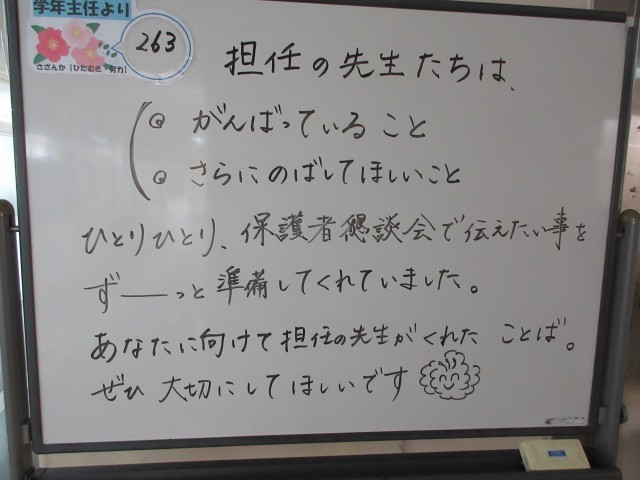 学年主任より
263
さざんか「ひたむき 努力」
担任の先生たちは、
◎ がんばっていること
◎ さらにのばしてほしいこと
ひとりひとり、保護者懇談会で伝えたい事を
ず――っと準備してくれていました。
あなたに向けて担任の先生がくれた ことば。
ぜひ 大切にしてほしいです